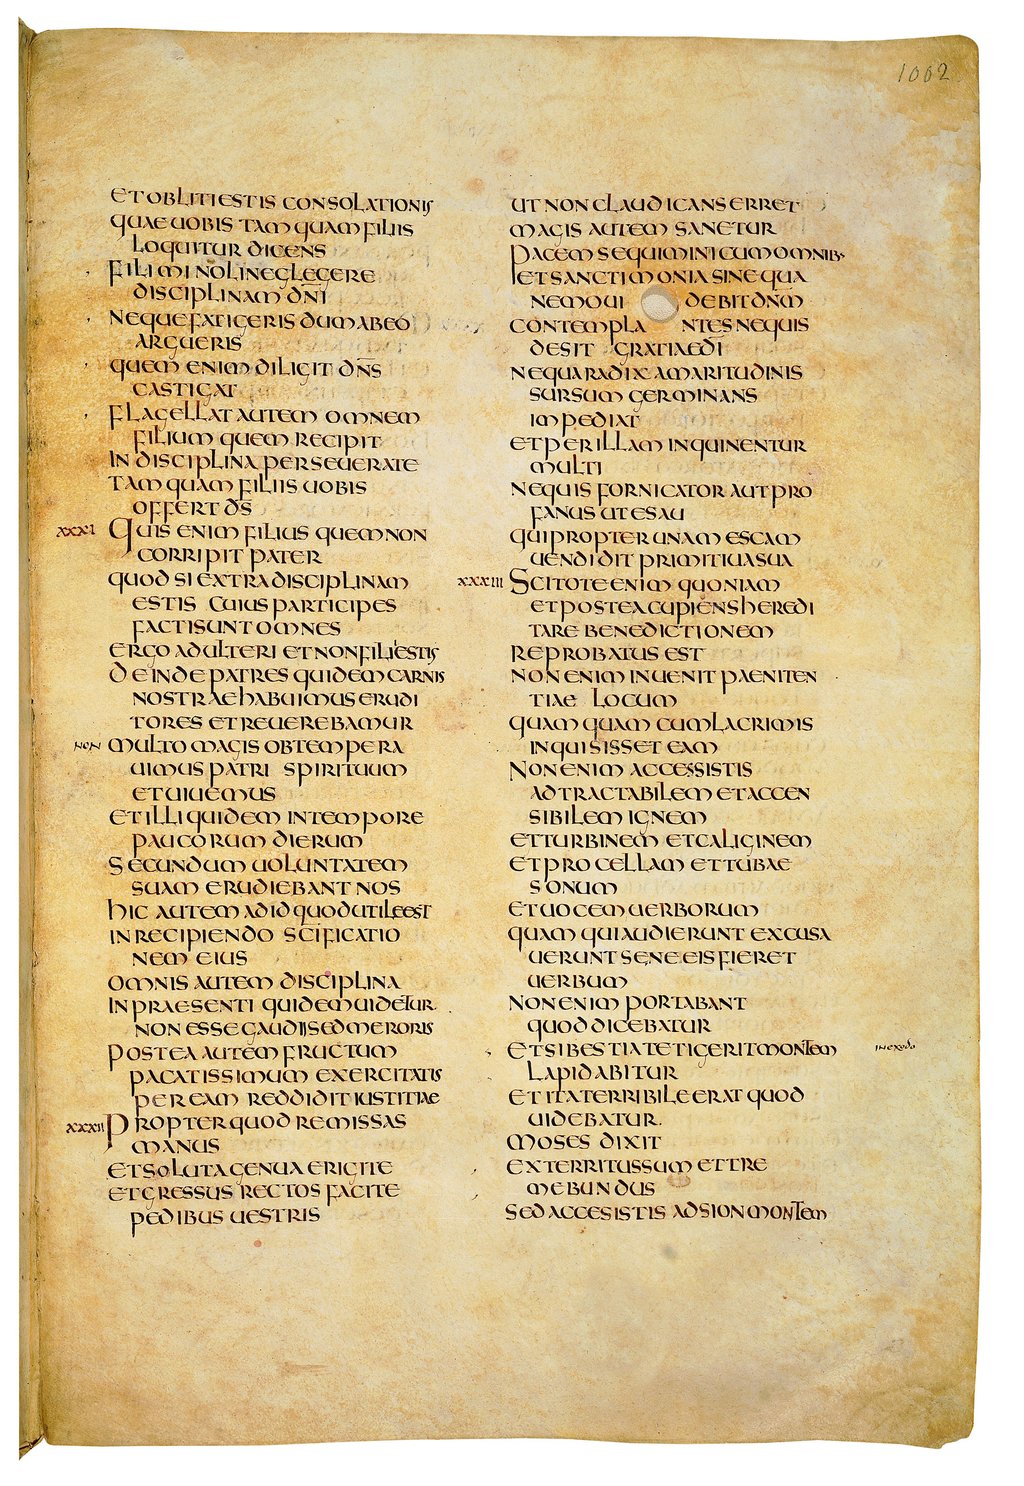 1002
ET OBLITI ESTIS CONSOLATIONIS
QUAE UOBIS TAMQUAM FILIIS
LOQUITUR DICENS
FILI MI NOLI NEGLEGERE
DISCIPLINAM DN̄I
NEQUE FATIGERIS DUM AB EO
ARGUERIS
QUEM ENIM DILIGIT DN̄S
CASTIGAT
FLAGELLAT AUTEM OMNEM
FILIUM QUEM RECIPIT
IN DISCIPLINA PERSEUERATE
TAMQUAM FILIIS UOBIS
OFFERT D̄S
XXXI QUIS ENIM FILIUS QUEM NON
CORRIPIT PATER
QUOD SI EXTRA DISCIPLINAM
ESTIS CUIUS PARTICIPES
FACTI SUNT OMNES
ERGO ADULTERI ET NON FILI ESTIS
DEINDE PATRES QUIDEM CARNIS
NOSTRAE HABUIMUS ERUDI
TORES ET REUEREBAMUR
NON MULTO MAGIS OBTEMPERA
UIMUS PATRI SPIRITUUM
ET UIUEMUS
ET ILLI QUIDEM IN TEMPORE
PAUCORUM DIERUM
SECUNDUM UOLUNTATEM
SUAM ERUDIEBANT NOS
HIC AUTEM AD ID QUOD UTILE EST
IN RECIPIENDO SCIFICATIO
NEM EIUS
OMNIS AUTEM DISCIPLINA
IN PRAESENTI QUIDEM UIDETUR
NON ESSE GAUDII SED MERORIS
POSTEA AUTEM FRUCTUM
PACATISSIMUM EXERCITATIS
PER EAM REDDIDIT IUSTITIAE
XXXII PROPTER QUOD REMISSAS
MANUS
ET SOLUTA GENUA ERIGITE
ET GRESSUS RECTOS FACITE
PEDIBUS UESTRIS
UT NON CLAUDICANS ERRET
MAGIS AUTEM SANETUR
PACEM SEQUIMINI CUM OMNIB·
ET SANCTIMONIA SINE QUA
NEMO UI DEBIT DN̄M
CONTEMPLA NTES NE QUIS
DESIT GRATIAE DI
NE QUA RADIX AMARITUDINIS
SURSUM GERMINANS
IMPEDIAT
ET PER ILLAM INQUINENTUR
MULTI
NE QUIS FORNICATOR AUT PRO
FANUS UT ESAU
QUI PROPTER UNAM ESCAM
UENDIDIT PRIMITIUA SUA
XXXIII SCITOTE ENIM QUONIAM
ET POSTEA CUPIENS HEREDI
TARE BENEDICTIONEM
REPROBATUS EST
NON ENIM INUENIT PAENITEN
TIAE LOCUM
QUAMQUAM CUM LACRIMIS
INQUISISSET EAM
NON ENIM ACCESSISTIS
AD TRACTABILEM ET ACCEN
SIBILEM IGNEM
ET TURBINEM ET CALIGINEM
ET PROCELLAM ET TUBAE
SONUM
ET UOCEM UERBORUM
QUAM QUI AUDIERUNT EXCUSA
UERUNT SE NE EIS FIERET
UERBUM
NON ENIM PORTABANT
QUOD DICEBATUR
ET SI BESTIA TETIGERIT MONTEM IN EXODO
LAPIDABITUR
ET ITA TERRIBILE ERAT QUOD
UIDEBATUR.
MOSES DIXIT
EXTERRITUS SUM ET TRE
MEBUNDUS
SED ACCESISTIS AD SION MONTEM